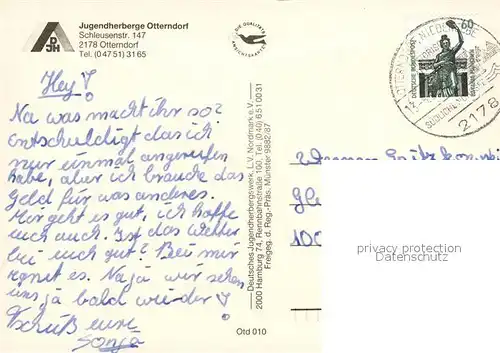 Jugendherberge Otterndorf
Schleusenstr. 147
2178 Otterndorf
Tel. (0 47 51) 31 65
DJH
DIE QUALITÄTS
ANSICHTSKARTE
Hey!
Na was macht ihr so?
Entschuldigt das ich
nur einmal angerufen
habe, aber ich brauche das
Geld für was anderes.
Mir geht es gut, ich hoffe
euch auch. Ist das Wetter
bei euch gut? Bei mir
regnet es. Na ja wir sehen
uns ja bald wieder!
Tschüß eure
Sonja
Deutsches Jugendherbergswerk, L.V. Nordmark e.V.
2000 Hamburg 74, Rennbahnstraße 100, Tel. (0 40) 6 51 00 31
Freigeg. d. Reg.-Präs. Münster 9882/87
Otd 010
60
DEUTSCHE BUNDESPOST
2178
privacy protection
Datenschutz